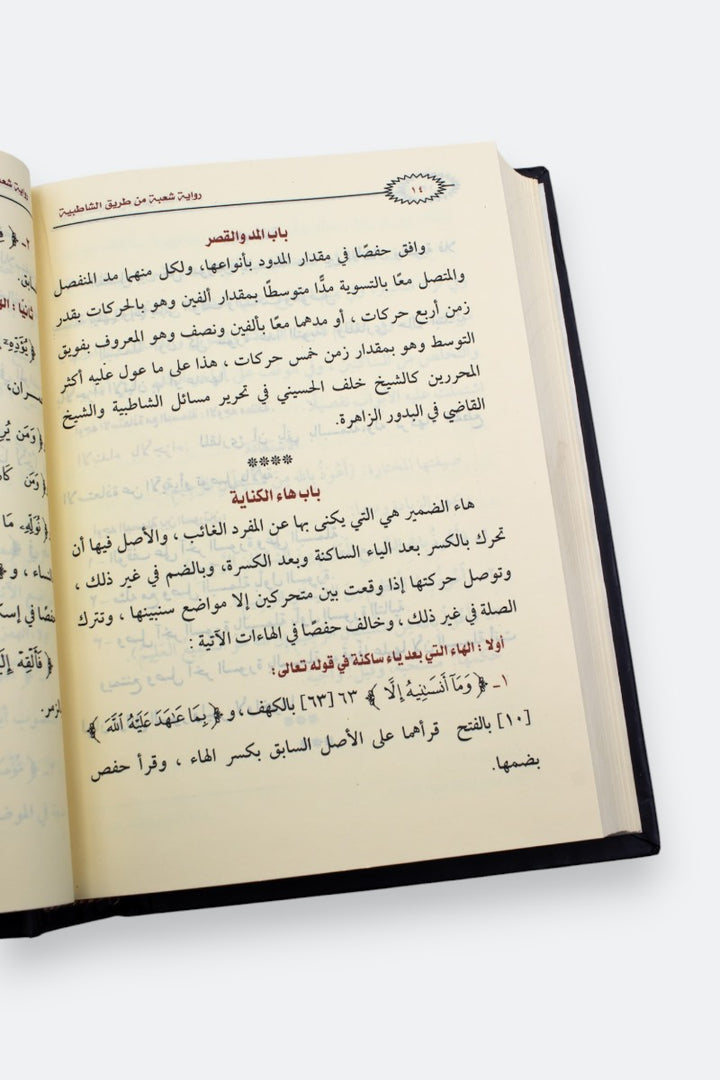 ١٤
رواية شعبة من طريق الشاطبية
باب المد والقصر
وافق حفصًا في مقدار المدود بأنواعها، ولكل منهما مد المنفصل
والمتصل معًا بالتسوية مدًّا متوسطًا بمقدار ألفين وهو بالحركات بقدر
زمن أربع حركات ، أو مدهما معًا بألفين ونصف وهو المعروف بفويق
التوسط وهو بمقدار زمن خمس حركات ، هذا على ما عول عليه أكثر
المحررين كالشيخ خلف الحسيني في تحرير مسائل الشاطبية والشيخ
القاضي في البدور الزاهرة.
****
باب هاء الكناية
هاء الضمير هي التي يكنى بها عن المفرد الغائب ، والأصل فيها أن
تحرك بالكسر بعد الياء الساكنة وبعد الكسرة، وبالضم في غير ذلك ،
وتوصل حركتها إذا وقعت بين متحركين إلا مواضع سنبينها ، وتترك
الصلة في غير ذلك ، وخالف حفصًا في الهاءات الآتية :
أولا : الهاء التي بعد ياء ساكنة في قوله تعالى:
١ـ ﴿ وَمَآ أَنسَىٰنِيهُ إِلَّا ﴾ ٦٣ [٦٣] بالكهف، و ﴿ بِمَا عَـٰهَدَ عَلَيْهُ ٱللَّهَ ﴾
[١٠] بالفتح قرأهما على الأصل السابق بكسر الهاء ، وقرأ حفص
بضمها.
٢ـ ﴿
ثانيًا : 
﴿ يُؤَدِّهِۦٓ
﴿ وَمَن
﴿ وَمَن
﴿ نُوَلِّهِۦ مَا
﴿ فَأَلْقِهْ